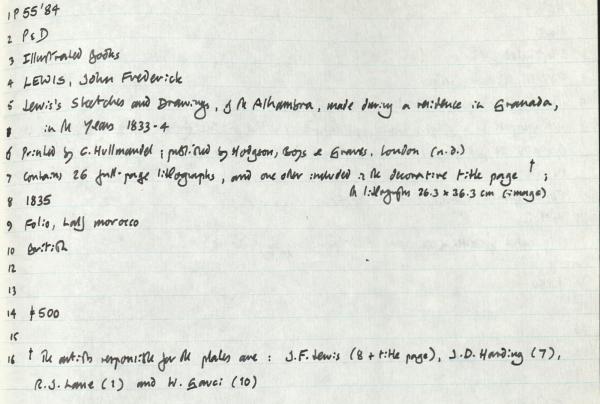 1 P 55'84
2 P&D
3 Illustrated Books
4 LEWIS, John Frederick
5 Lewis's Sketches and Drawings, of the Alhambra, made during a residence in Granada,
in the Years 1833-4
6 Printed by C. Hullmandel; published by Hodgson, Boys & Graves, London (n.d.)
7 Contains 26 full-page lithographs, and one other included in the decorative title page †;
the lithographs 26.3 x 36.3 cm (image)
8 1835
9 Folio, half morocco
10 British
12
13
14 500
15
16 † The artists responsible for the plates are: J.F. Lewis (8 + title page), J.D. Harding (7),
R.J. Lane (1) and W. Gauci (10)